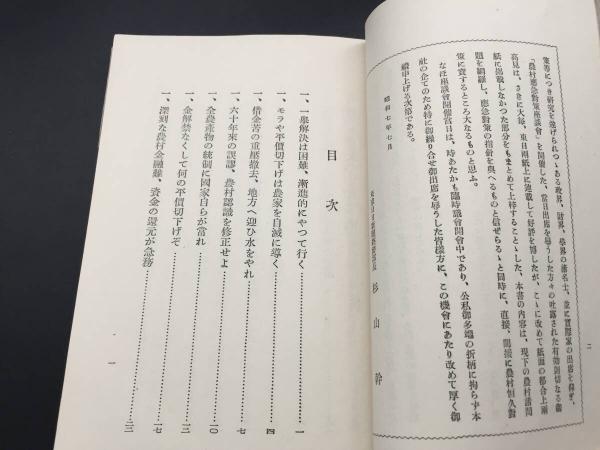 策等につき研究を遂げられつゝある政界、財界、學界の諸名士、並に實際家の出席を仰ぎ、
「農村應急對策座談會」を開催した、當日出席を辱うした方々の吐露された有効剴切なる御
高見は、さきに大毎、東日兩紙上に連載して好評を博したが、こゝに改めて紙面の都合上兩
紙に掲載しなかつた部分をもまとめて上梓することゝした、本書の内容は、現下の農村諸問
題を網羅し、應急對策の指針を與へるものと信ぜらるゝと同時に、直接、間接に農村恒久對
策に資するところ大なるものと思ふ。
なほ座談會開催當日は、時あたかも臨時議會開會中であり、公私御多端の折柄に拘らず本
社の企てのため特に御繰り合せ御出席を辱うした皆樣方に、この機會にあたり改めて厚く御
禮申上げる次第である。
昭和七年七月
杉山幹
二
目次
一、一擧解決は困難、漸進的にやつて行く…………一
一、モラや平價切下げは農家を自滅に導く…………四
一、借金苦の重壓撤去、地方へ迎ひ水をやれ…………七
一、六十年來の誤謬、農村認識を修正せよ…………一〇
一、全農産物の統制に國家自らが當れ…………一三
一、金解禁なくして何の平價切下げぞ…………一七
一、深刻な農村金融難、資金の還元が急務…………二三
一